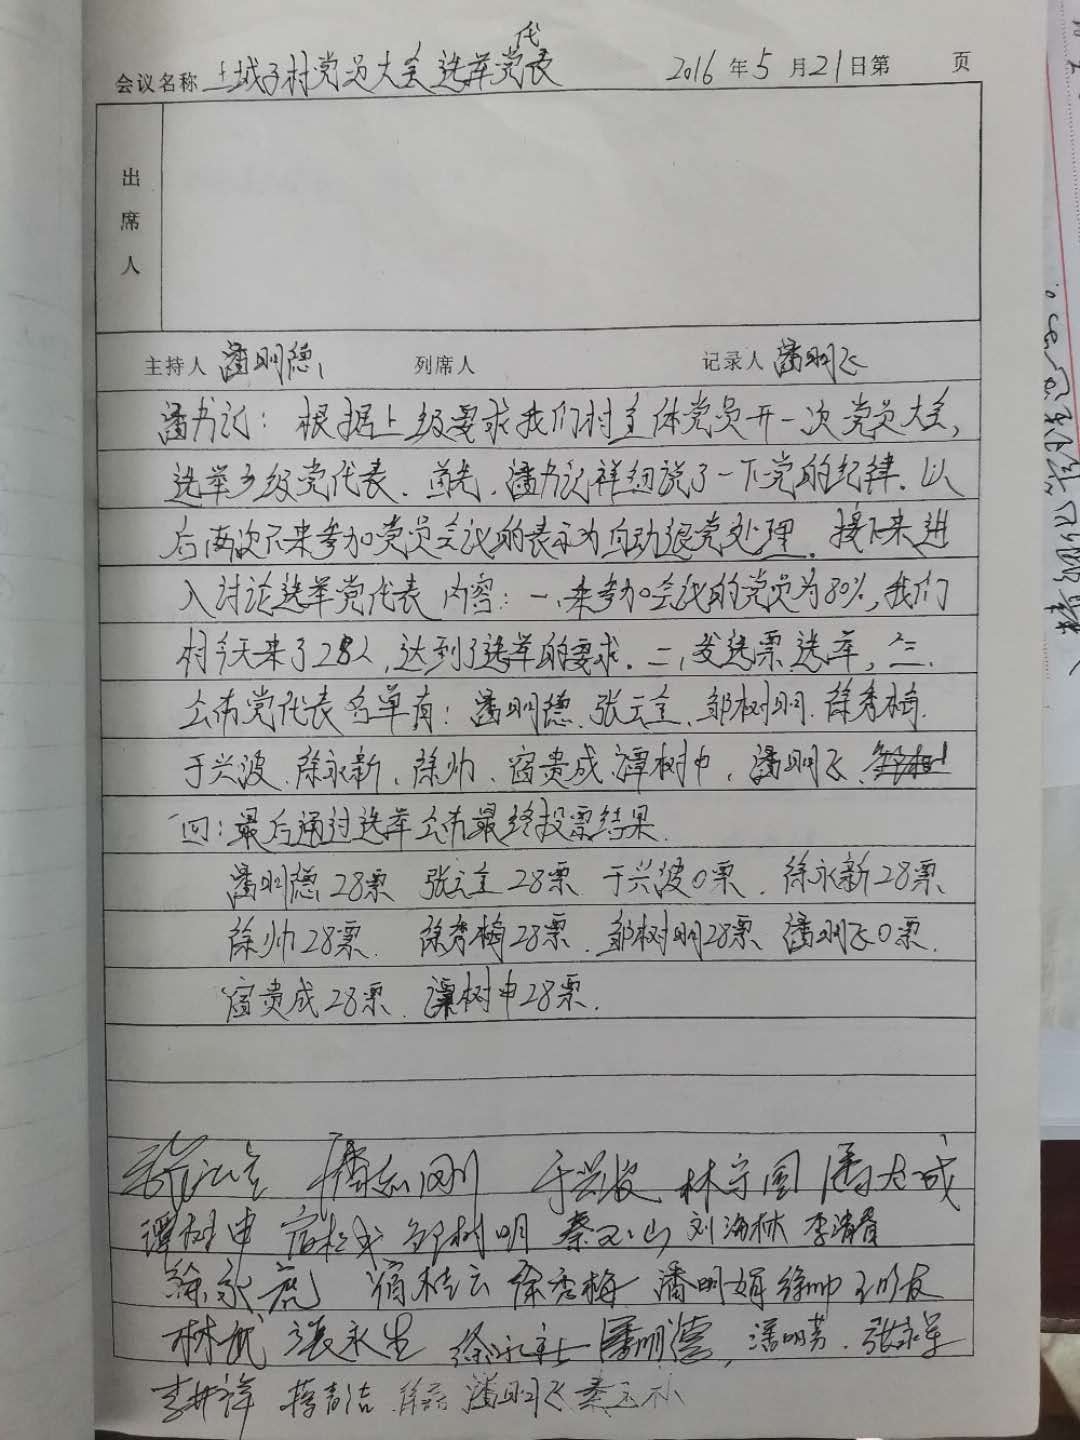 代
会议名称 土城子村党员大会选举党表 2016年5月21日第 页
出席人
主持人 潘明德 列席人 记录人 潘明飞
潘书记：根据上级要求我们村全体党员开一次党员大会，
选举乡级党代表．首先．潘书记祥细说了一下党的纪律．以
后两次不来参加党员会议的表示为自动退党处理．接下来进
入讨论选举党代表 内容：一、来参加会议的党员为80%，我们
村今天来了28人，达到了选举的要求．二、发选票选举，三、
公布党代表名单有：潘明德、张云全、邹树明．徐秀梅．
于兴波．徐永新、徐帅、宿贵成、谭树申，潘明飞、
四：最后通过选举公布最终投票结果．
潘明德28票 张云全28票 于兴波0票．徐永新28票
徐帅28票． 徐秀梅28票．邹树明28票 潘明飞0票．
宿贵成28票． 谭树申28票．
于兴波 林守国 潘大成
谭树申 邹树明 秦玉山 刘海林 李清贵
宿桂云 徐秀梅 潘明娟 徐帅 王明友
林武 张永生 潘明德， 潘明芳．张永军
潘明飞 秦玉林